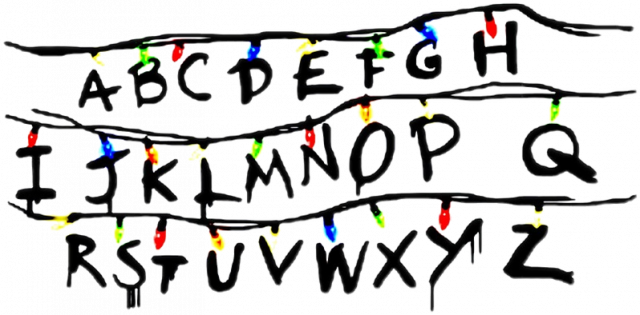 A B C D E F G H
I J K L M N O P Q
R S T U V W X Y Z